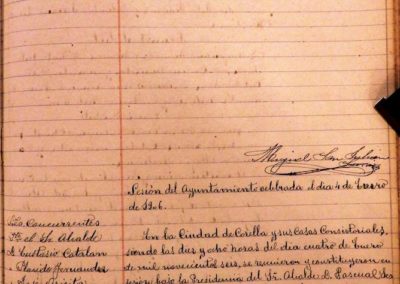 Miguel San Julian
Sesión del Ayuntamiento celebrada el dia 4 de Enero
de 1906.
Sres Concurrentes
Sr. el Sr Alcalde
D. Eustasio Catalan
" Claudio Hernandez
En la Ciudad de Corella y sus Casas Consistoriales,
siendo las diez y ocho horas del dia cuatro de Enero
de mil novecientos seis, se reunieron y constituyeron en
sesión bajo la Presidencia del Sr Alcalde D. Pascual